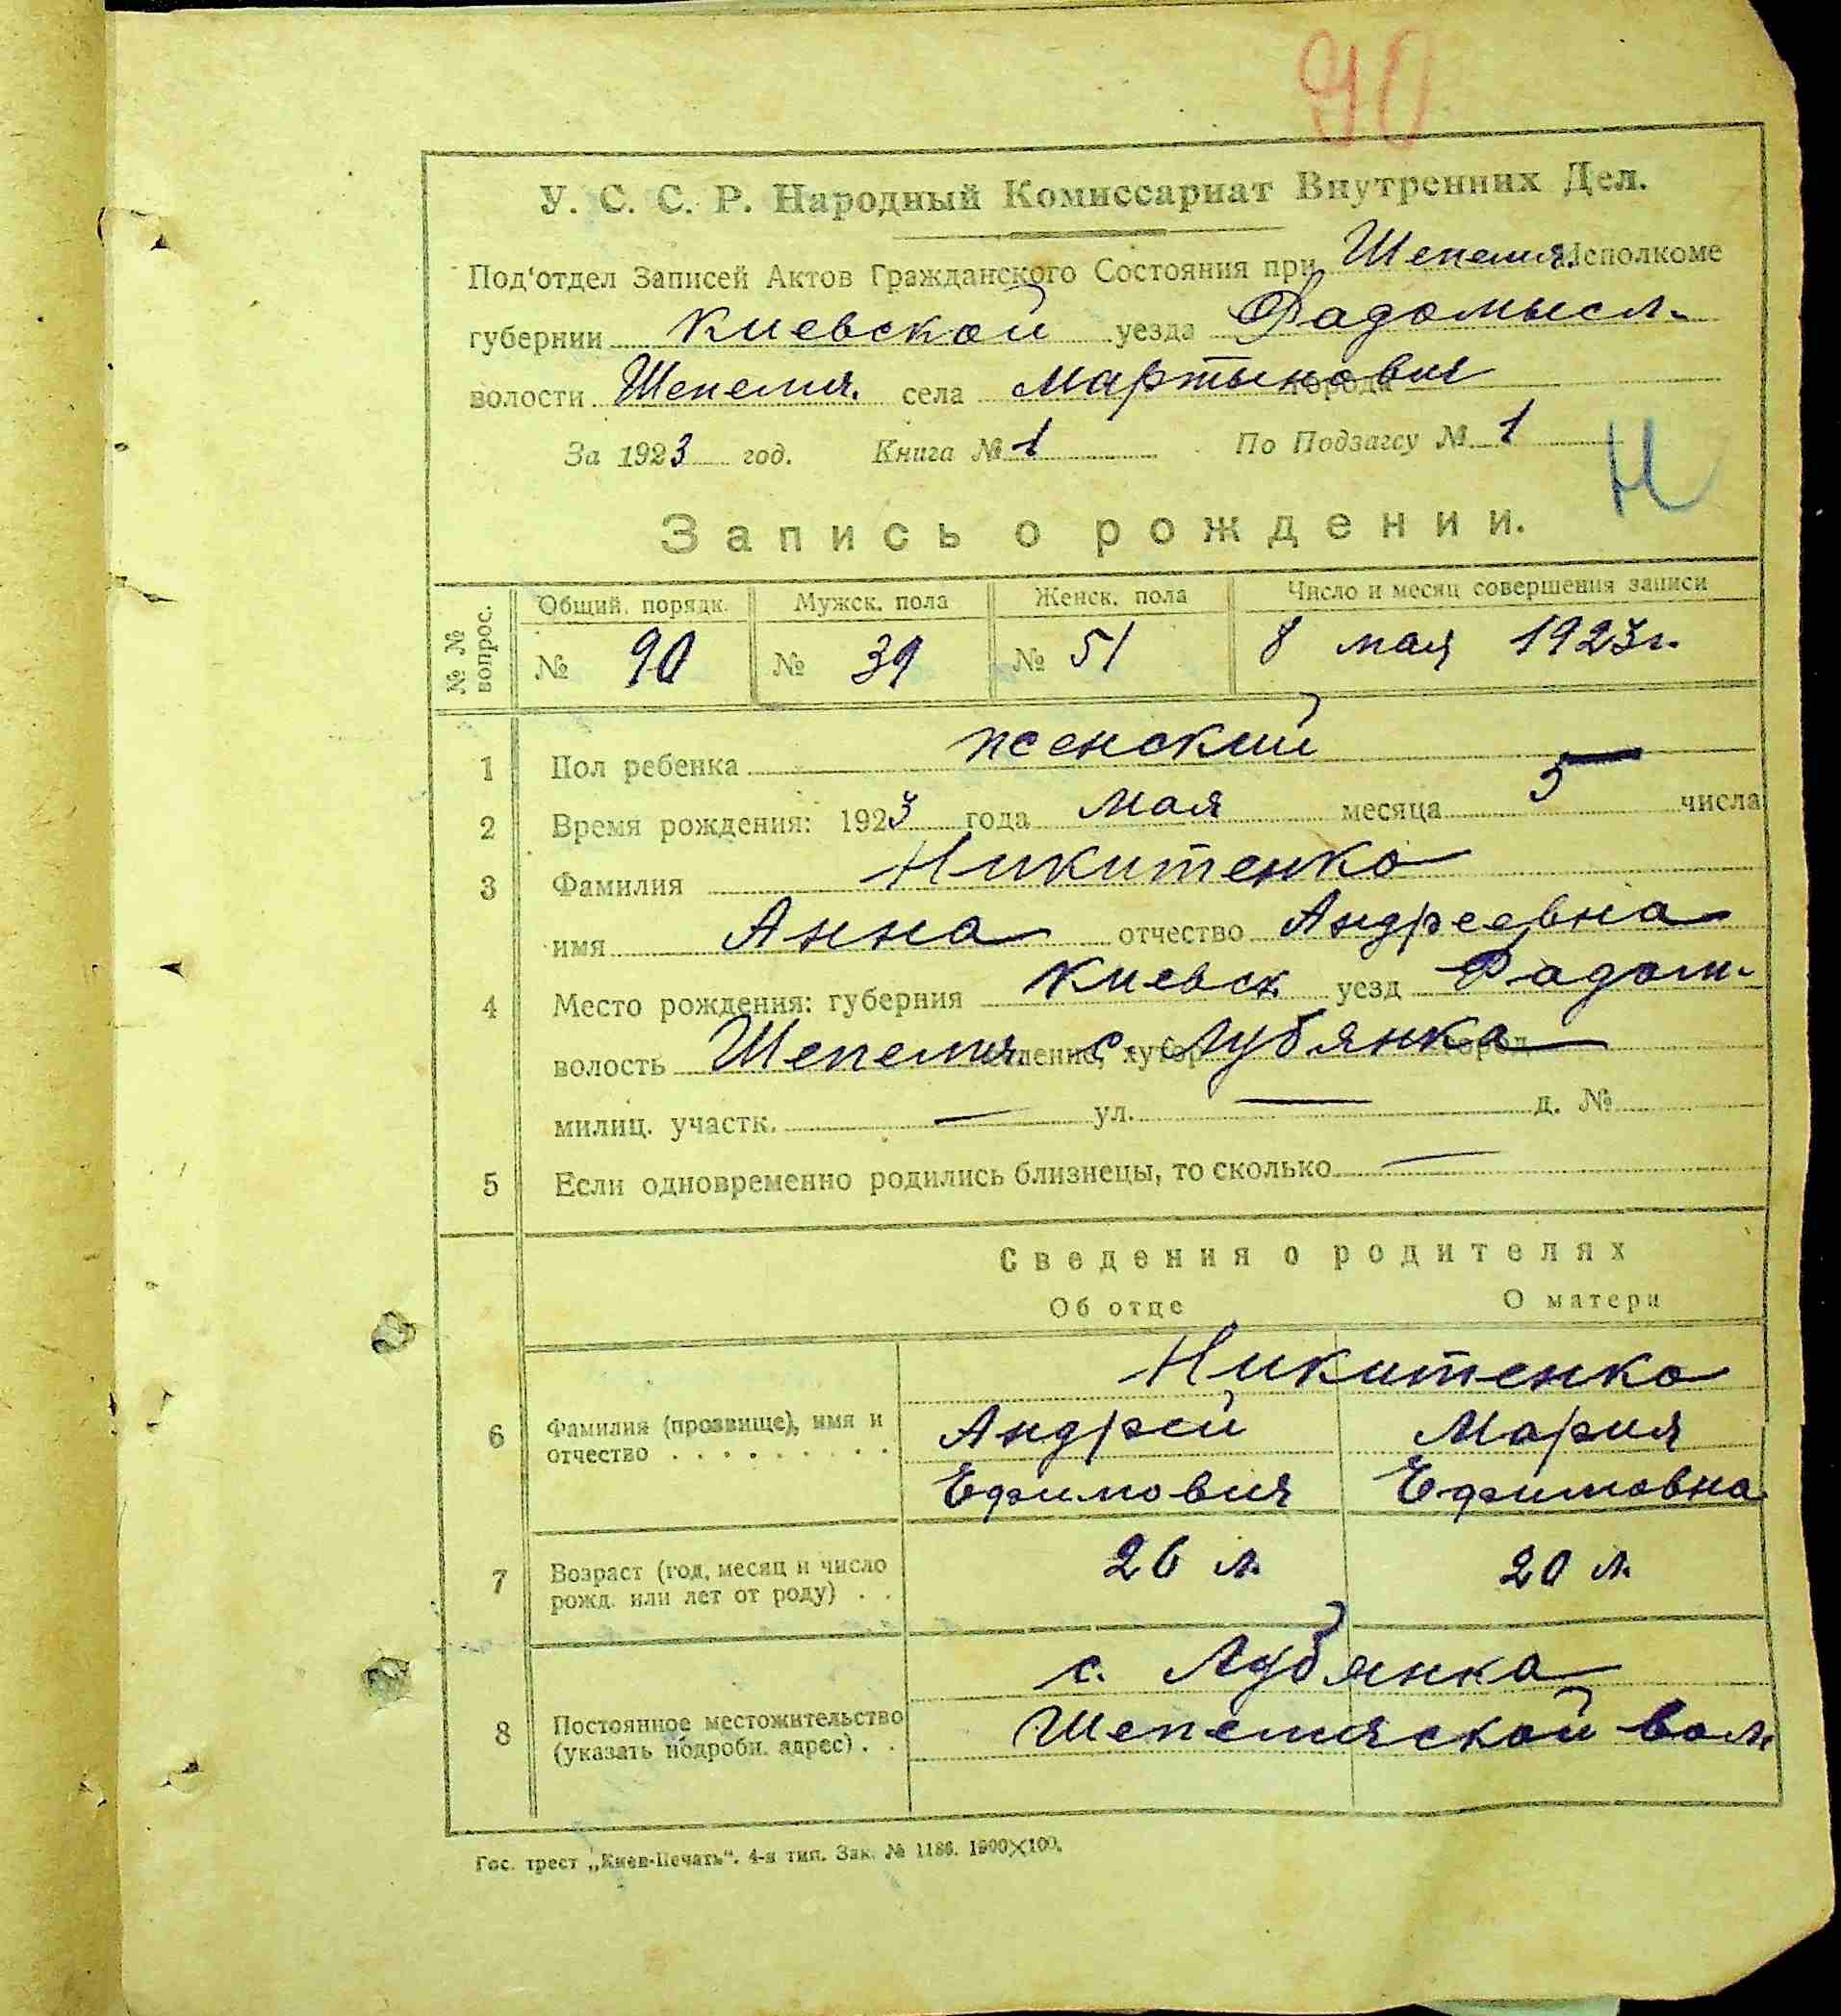 90
У. С. С. Р. Народный Комиссариат Внутренних Дел.
Под'отдел Записей Актов Гражданского Состояния при Шепелич. Исполкоме
губернии Киевской уезда Радомысл.
волости Шепелич. села Мартынович города
За 1923 год. Книга № 1 По Подзагсу № 1
Н
Запись о рождении.
№ № вопрос. Общий. порядк. Мужск. пола Женск. пола Число и месяц совершения записи
№ 90 № 39 № 51 8 мая 1923 г.
1 Пол ребенка женский
2 Время рождения: 1923 года мая месяца 5 числа
3 Фамилия Никитенко
имя Анна отчество Андреевна
4 Место рождения: губерния Киевск уезд Радом.
волость Шепелич. с. Лубянка
милиц. участк. — ул. — д. №
5 Если одновременно родились близнецы, то сколько —
Сведения о родителях
Об отце О матери
Никитенко
6 Фамилия (прозвище), имя и отчество Андрей Мария
Ефимович Ефимовна
7 Возраст (год, месяц и число рожд. или лет от роду) 26 л. 20 л.
с. Лубянка
8 Постоянное местожительство (указать подробн. адрес) Шепеличской вол.
Гос. трест „Киев-Печать". 4-я тип. Зак. № 1186. 1900×100.